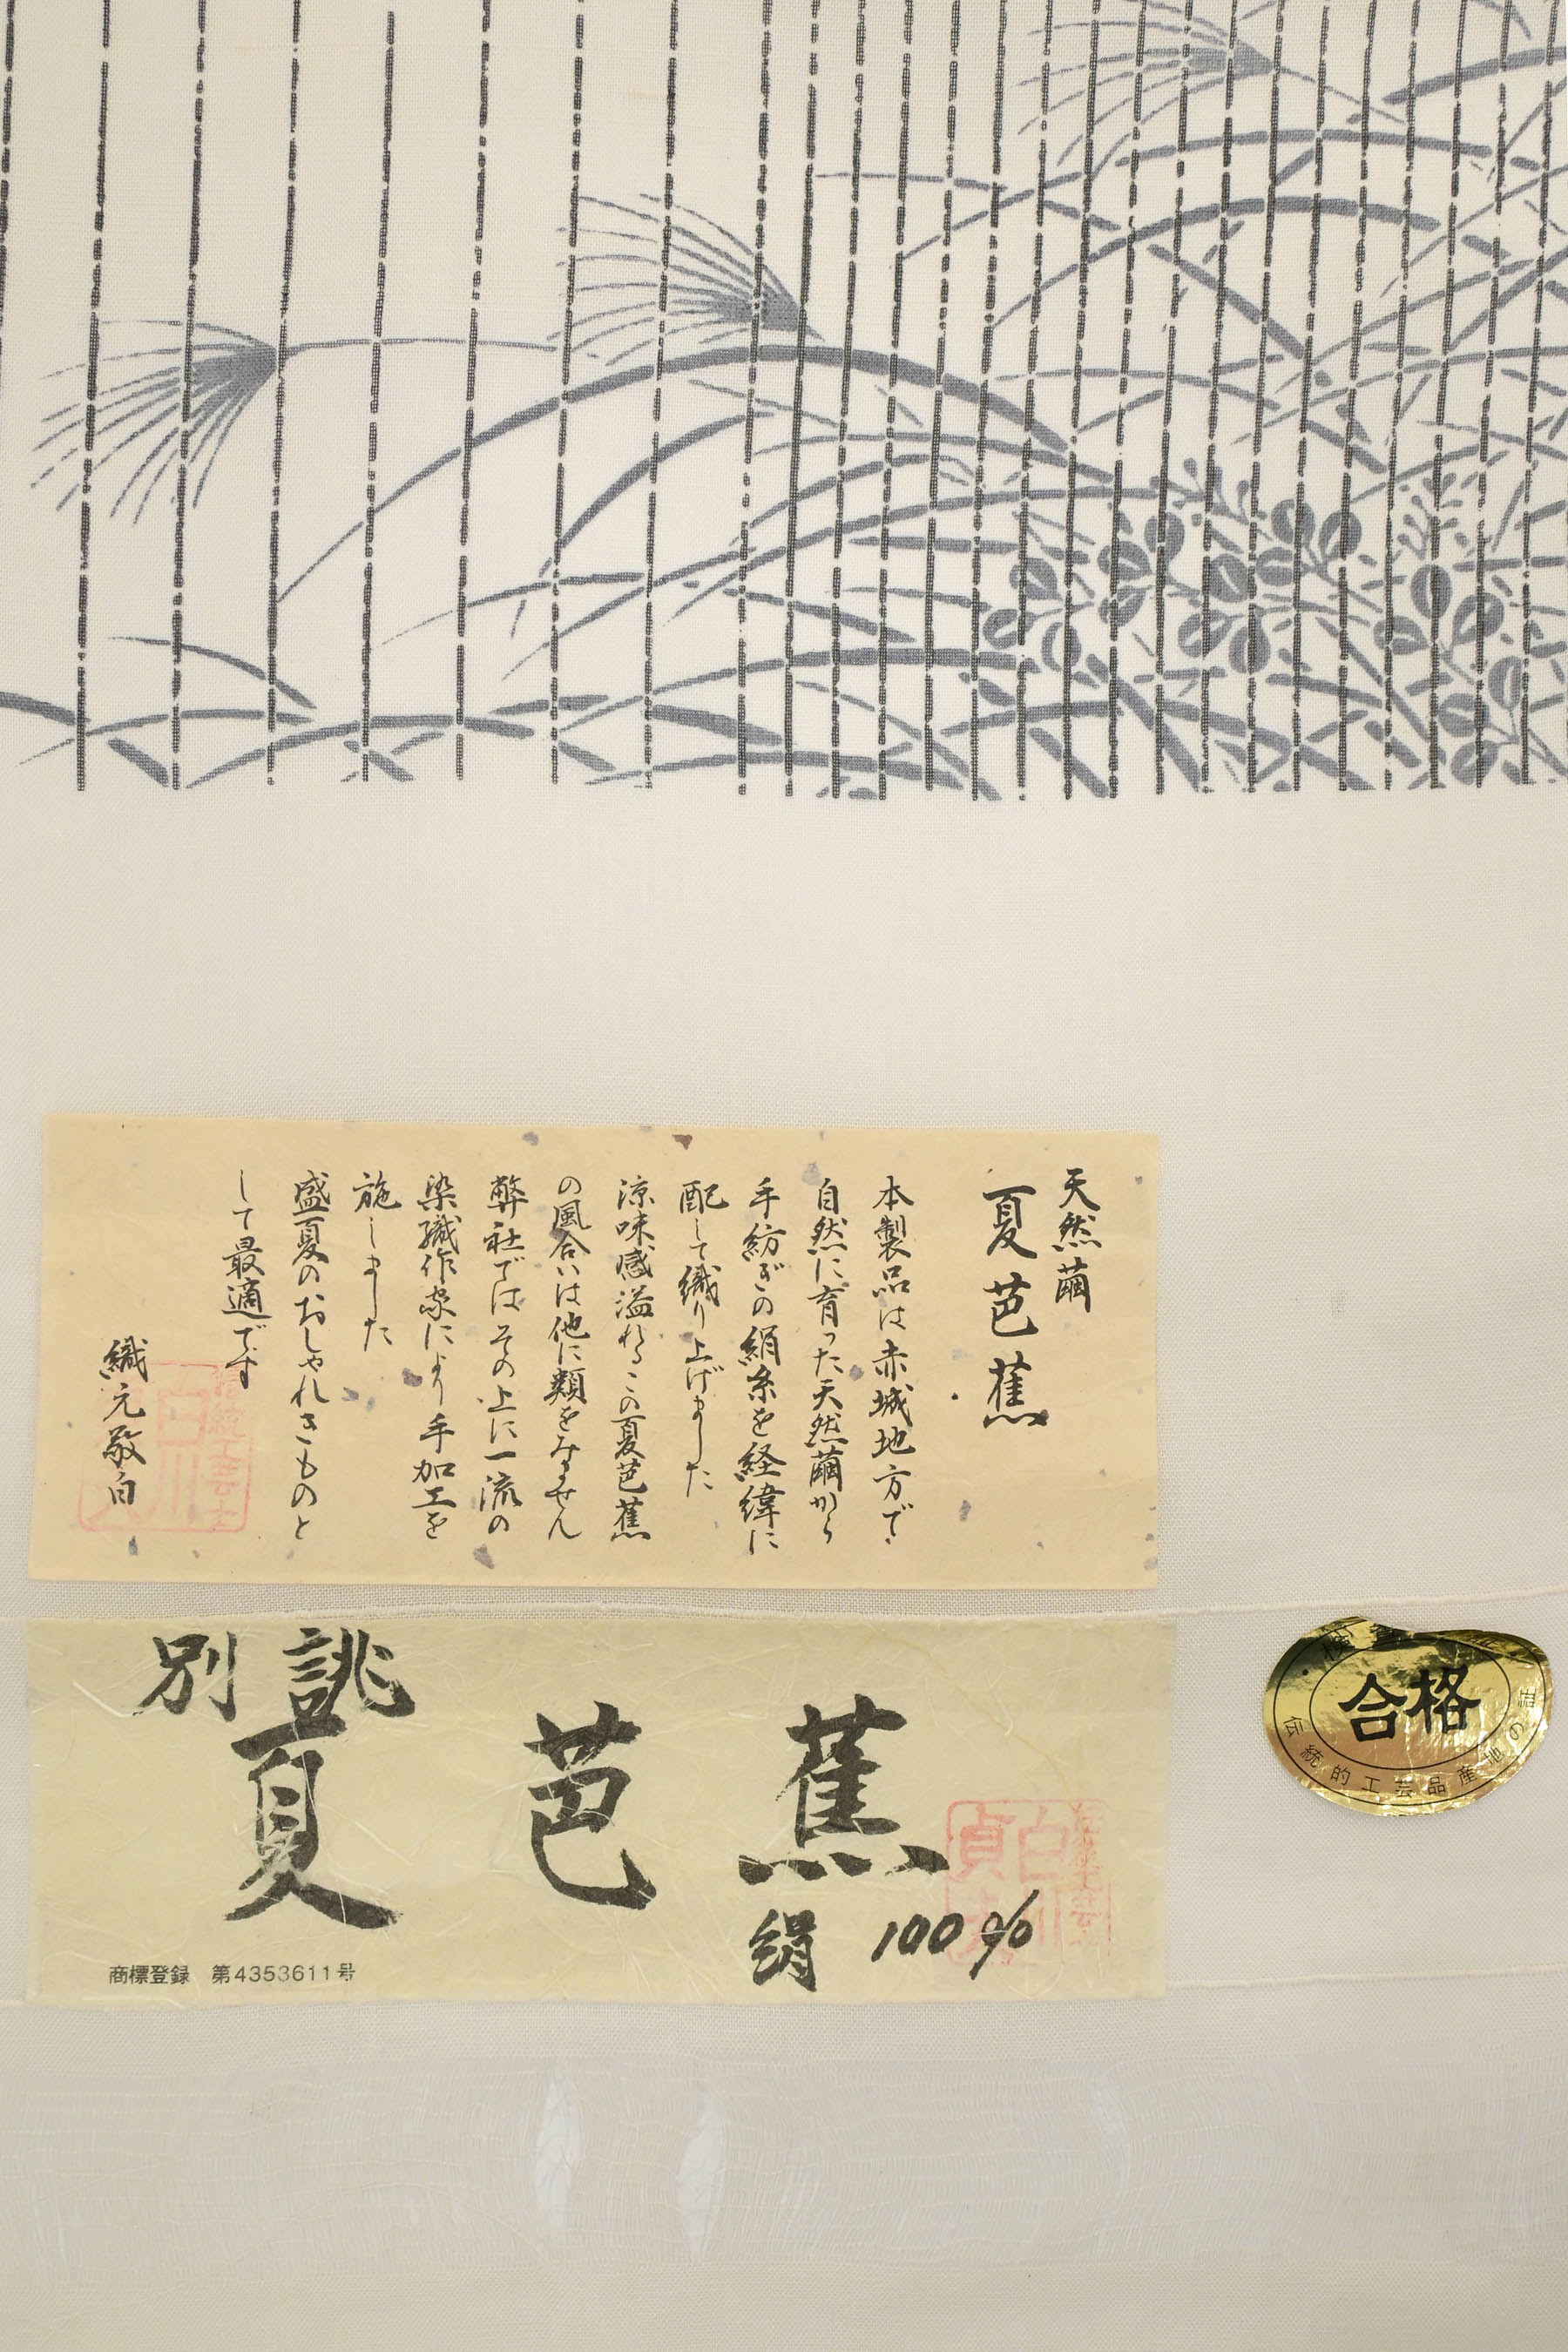 天然繭
夏芭蕉
本製品は赤城地方で
自然に育った天然繭から
手紡ぎの絹糸を経緯に
配して織り上げました
涼味感溢れるこの夏芭蕉
の風合いは他に類をみません
弊社ではその上に一流の
染織作家により手加工を
施しました
盛夏のおしゃれきものと
して最適です
織元敬白
別誂
夏芭蕉
絹 100%
商標登録 第4353611号
合格
伝統的工芸品産地の証